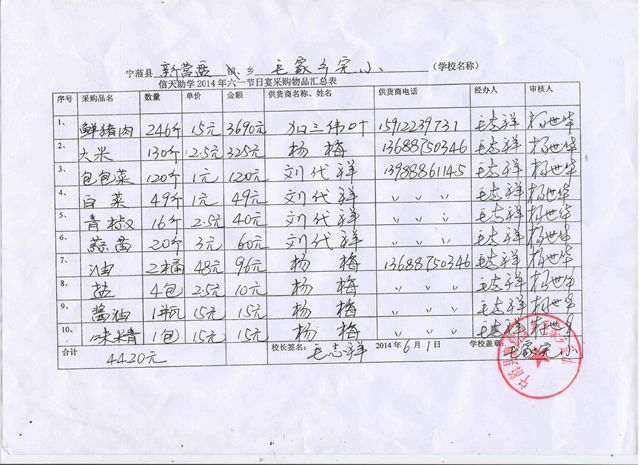 宁蒗县 新营盘 镇、乡 毛家乡完小 (学校名称)
信天助学2014年六一节日宴采购物品汇总表
序号 采购品名 数量 单价 金额 供货商名称、姓名 供货商电话 经办人 审核人
1、 鲜猪肉 246斤 15元 3690元 15912239731 毛志祥 杨世华
2、 大米 130斤 2.5元 325元 杨梅 13688750346 毛志祥 杨世华
3、 包包菜 120斤 1元 120元 刘代祥 13988861145 毛志祥 杨世华
4、 白菜 49斤 1元 49元 刘代祥 〃 〃 〃 毛志祥 杨世华
5、 青椒 16斤 2.5元 40元 刘代祥 〃 〃 〃 毛志祥 杨世华
6、 蒜苗 20斤 3元 60元 刘代祥 〃 〃 〃 毛志祥 杨世华
7、 油 2桶 48元 96元 杨梅 13688750346 毛志祥 杨世华
8、 盐 4包 2.5元 10元 杨梅 〃 〃 〃 毛志祥 杨世华
9、 酱油 1瓶 15元 15元 杨梅 〃 〃 〃 毛志祥 杨世华
10、 味精 1包 15元 15元 杨梅 〃 〃 〃 毛志祥 杨世华
合计 4420元 校长签名: 毛志祥 2014年6月1日 学校盖章: 毛家完小